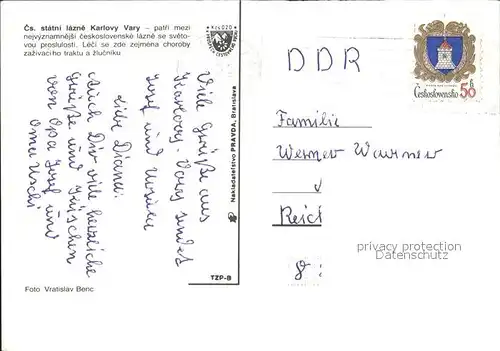 Čs. státní lázně Karlovy Vary – patří mezi
nejvýznamnější československé lázně se světo-
vou proslulostí. Léčí se zde zejména choroby
zažívacího traktu a žlučníku
Viele Grüße aus
Karlovy-Vary sendet
Josef und Ursula
Liebe Diana!
Auch Dir viele herzliche
Grüße und Küsschen
von Opa Josef und
Oma Uschi
Foto Vratislav Benc
Nakladatelstvo PRAVDA, Bratislava
TZP-B
DDR
Československo 50 h
Familie
Werner
Reich
privacy protection
Datenschutz